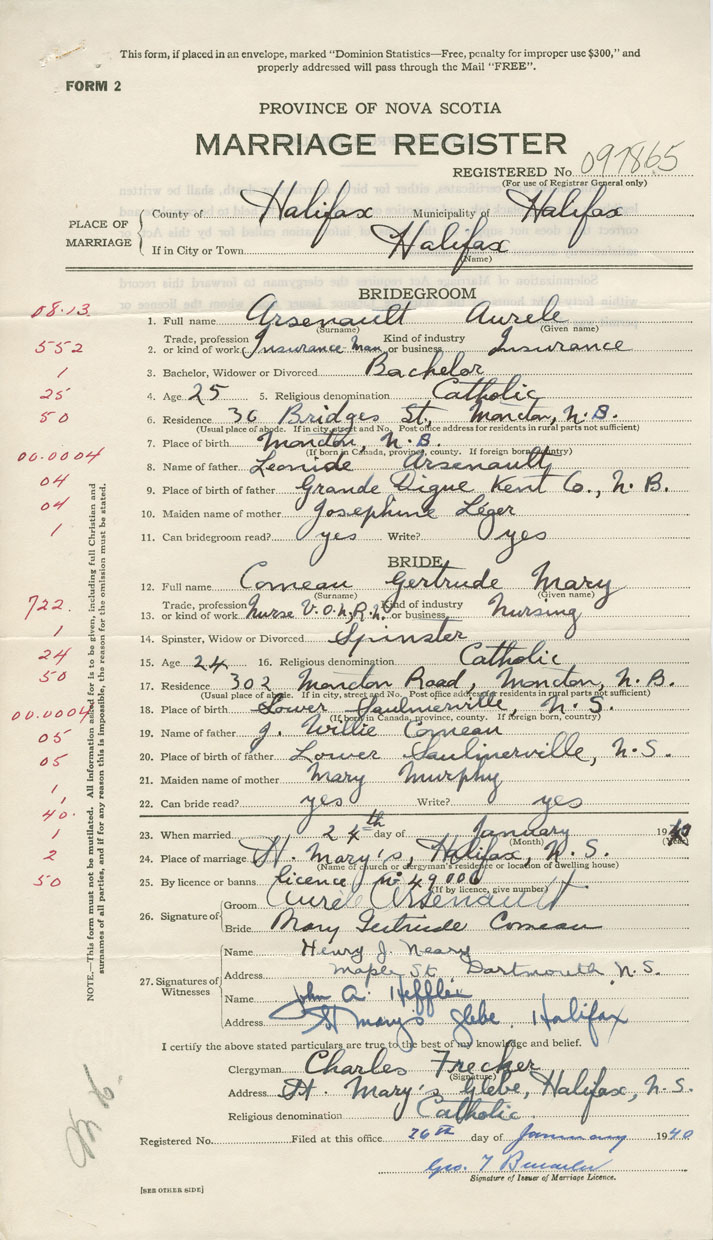 This form, if placed in an envelope, marked "Dominion Statistics—Free, penalty for improper use $300," and
properly addressed will pass through the Mail "FREE".
FORM 2
PROVINCE OF NOVA SCOTIA
MARRIAGE REGISTER
REGISTERED No. 097865
(For use of Registrar General only)
PLACE OF MARRIAGE
County of Halifax Municipality of Halifax
If in City or Town Halifax
(Name)
BRIDEGROOM
08.13
1. Full name Arsenault Aurele
(Surname) (Given name)
552
2. Trade, profession or kind of work Insurance Man Kind of industry or business Insurance
1
3. Bachelor, Widower or Divorced Bachelor
25
4. Age 25 5. Religious denomination Catholic
50
6. Residence 36 Bridges St, Moncton, N.B.
(Usual place of abode. If in city, street and No. Post office address for residents in rural parts not sufficient)
7. Place of birth Moncton, N.B.
(If born in Canada, province, county. If foreign born, country)
00.0004
8. Name of father Leonide Arsenault
04
9. Place of birth of father Grande Digue Kent Co., N.B.
04
10. Maiden name of mother Josephine Léger
1
11. Can bridegroom read? yes Write? yes
BRIDE
12. Full name Comeau Gertrude Mary
(Surname) (Given name)
722.
13. Trade, profession or kind of work Nurse V.O.N, R.N. Kind of industry or business Nursing
1
14. Spinster, Widow or Divorced Spinster
24
15. Age 24 16. Religious denomination Catholic
50
17. Residence 302 Moncton Road, Moncton, N.B.
(Usual place of abode. If in city, street and No. Post office address for residents in rural parts not sufficient)
00.0004
18. Place of birth Lower Saulnierville, N.S.
(If born in Canada, province, county. If foreign born, country)
05
19. Name of father J. Willie Comeau
05
20. Place of birth of father Lower Saulnierville, N.S.
1
21. Maiden name of mother Mary Murphy
1
22. Can bride read? yes Write? yes
40.
1
23. When married 24th day of January 1940
(Month) (Year)
2
24. Place of marriage St. Mary's, Halifax, N.S.
(Name of church or clergyman's residence or location of dwelling house)
50
25. By licence or banns licence No 49006
(If by licence, give number)
26. Signature of
Groom Aurele Arsenault
Bride Mary Gertrude Comeau
27. Signatures of Witnesses
Name Henry J. Neary
Address Maple St. Dartmouth N.S.
Name John A. Hefflie
Address St Mary's Glebe, Halifax
I certify the above stated particulars are true to the best of my knowledge and belief.
Clergyman Charles Frecker
(Signature)
Address St. Mary's Glebe, Halifax, N.S.
Religious denomination Catholic.
Registered No. Filed at this office 26th day of January 1940
Geo. T
Signature of Issuer of Marriage Licence.
[SEE OTHER SIDE]
NOTE.—This form must not be mutilated. All information asked for is to be given, including full Christian and
surnames of all parties, and if for any reason this is impossible, the reason for the omission must be stated.